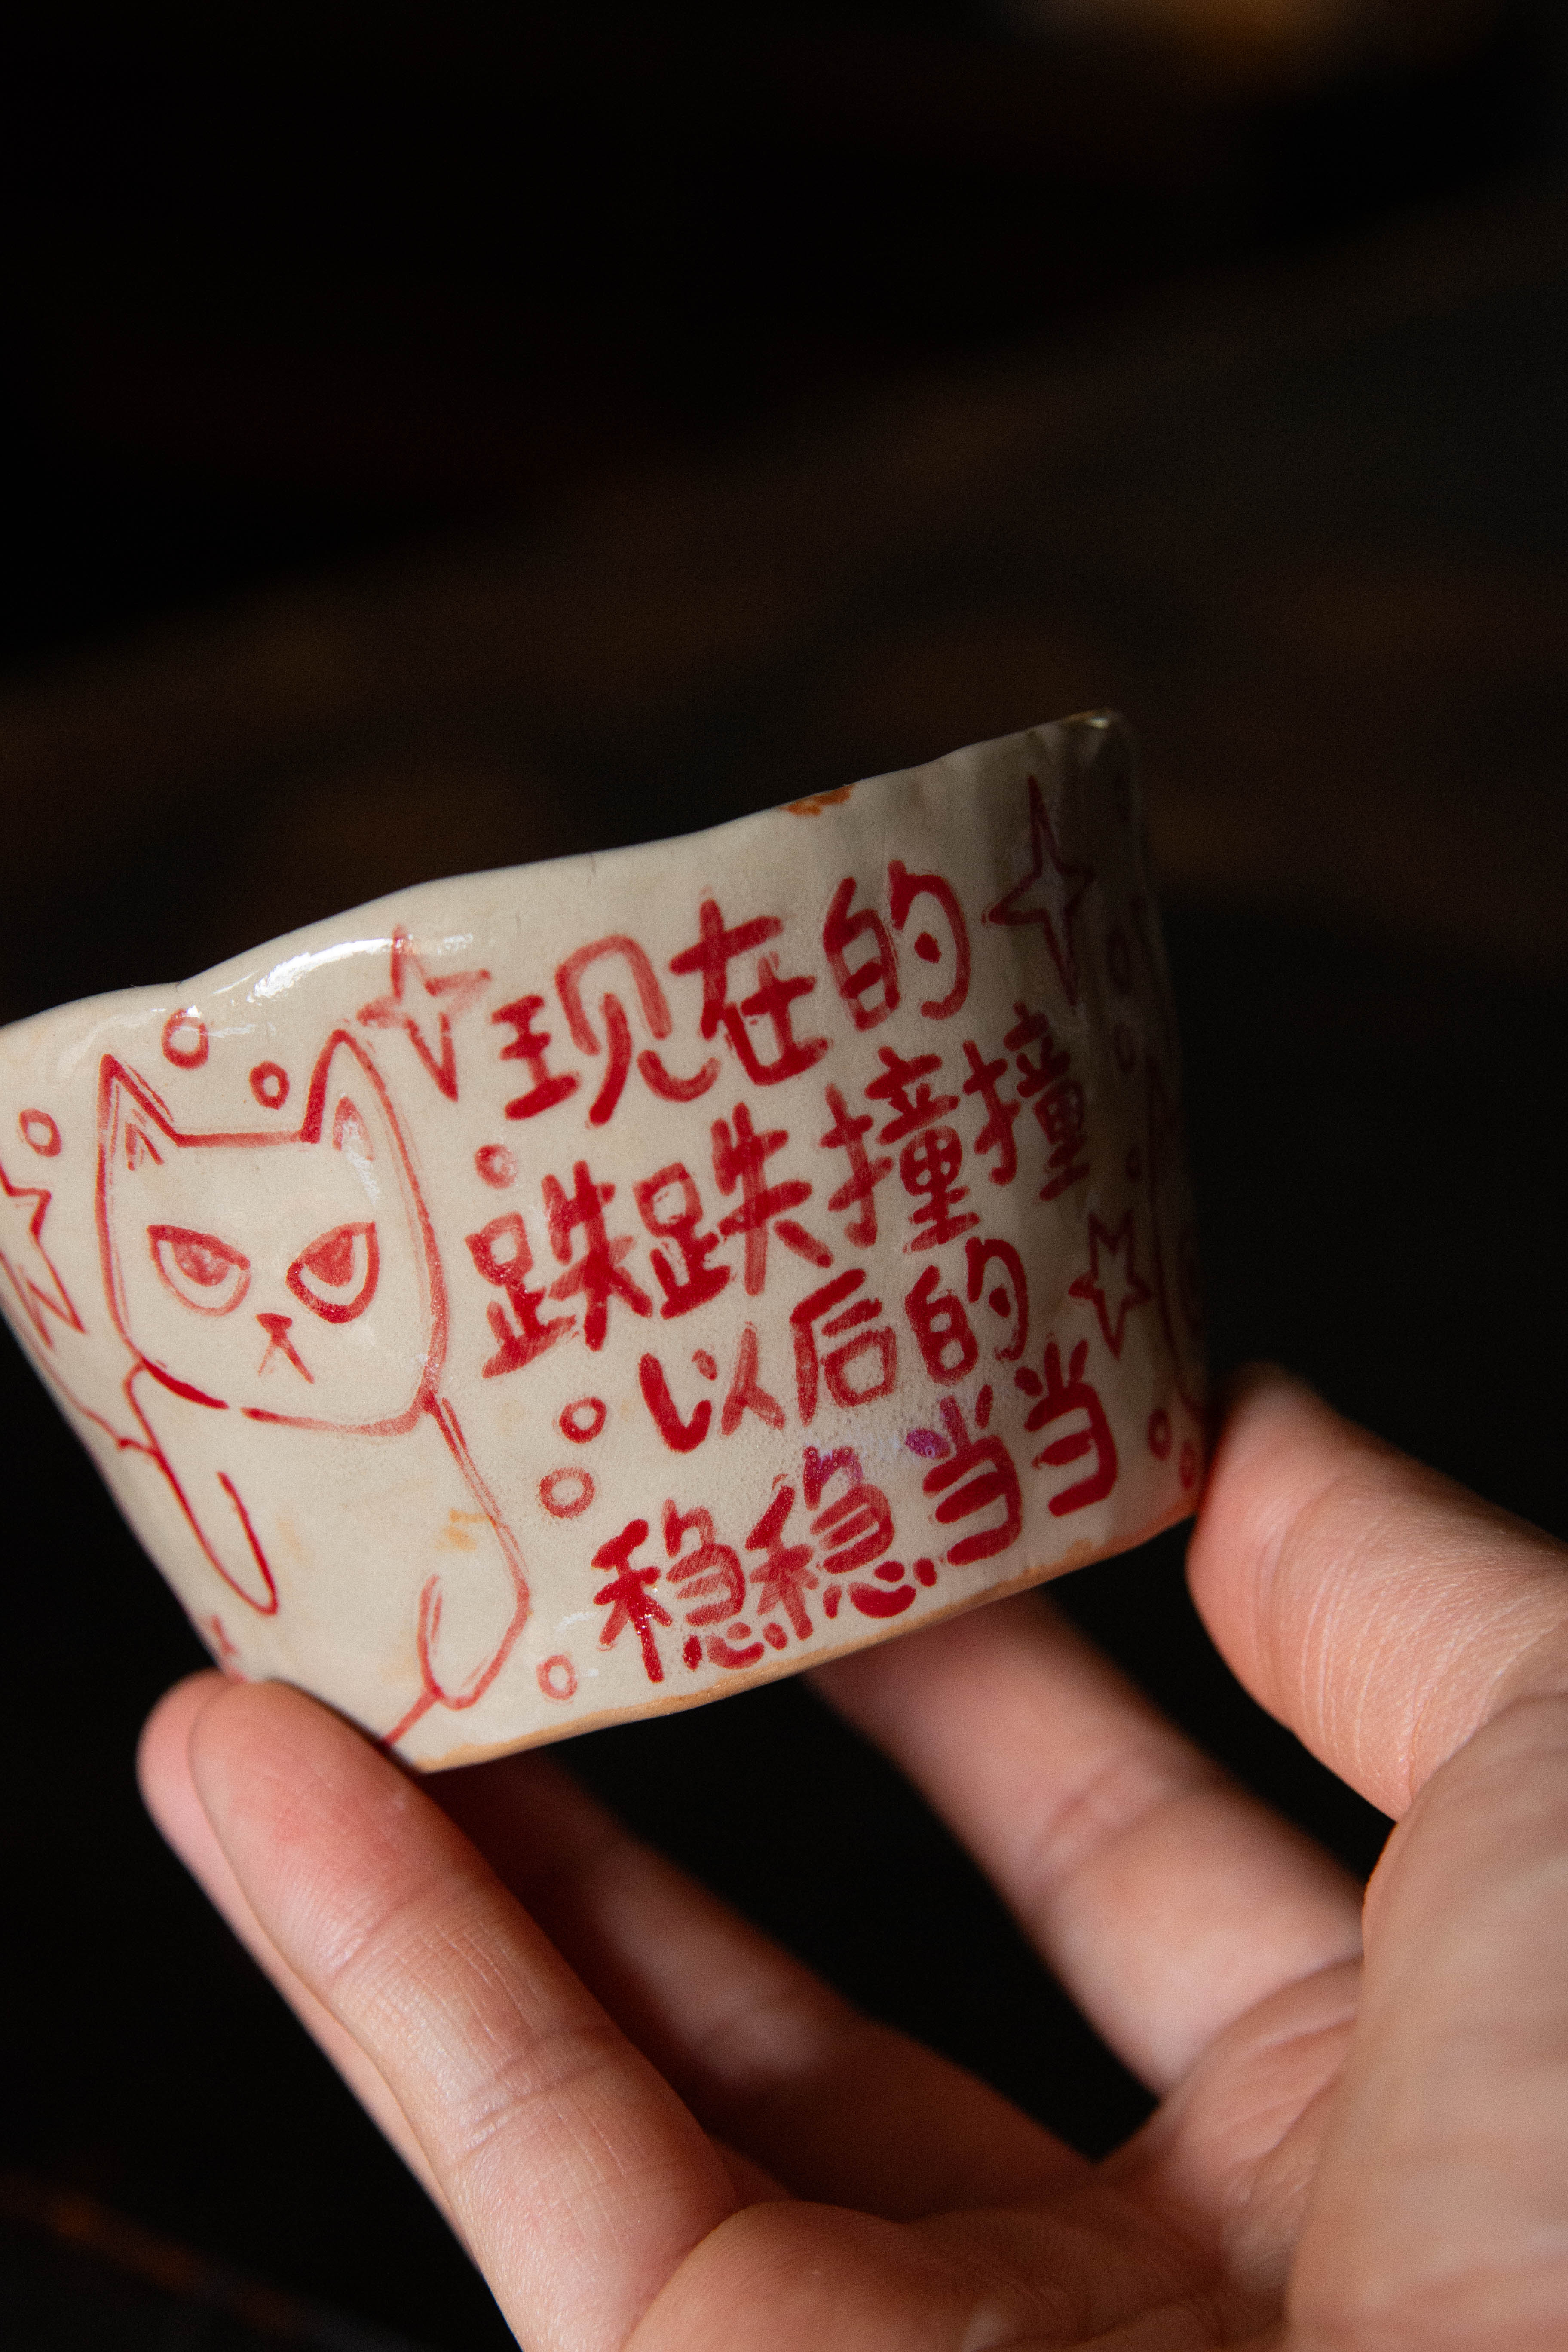 现在的
跌跌撞撞
以后的
稳稳当当